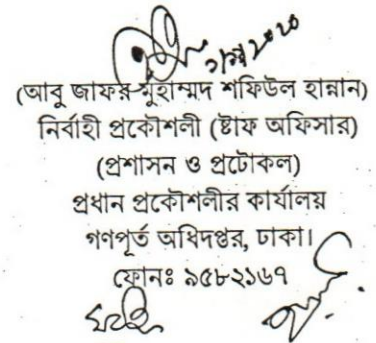 (আবু জাফর মুহাম্মদ শফিউল হান্নান)
নির্বাহী প্রকৌশলী (ষ্টাফ অফিসার)
(প্রশাসন ও প্রটোকল)
প্রধান প্রকৌশলীর কার্যালয়
গণপূর্ত অধিদপ্তর, ঢাকা।
ফোনঃ ৯৫৮২১৬৭